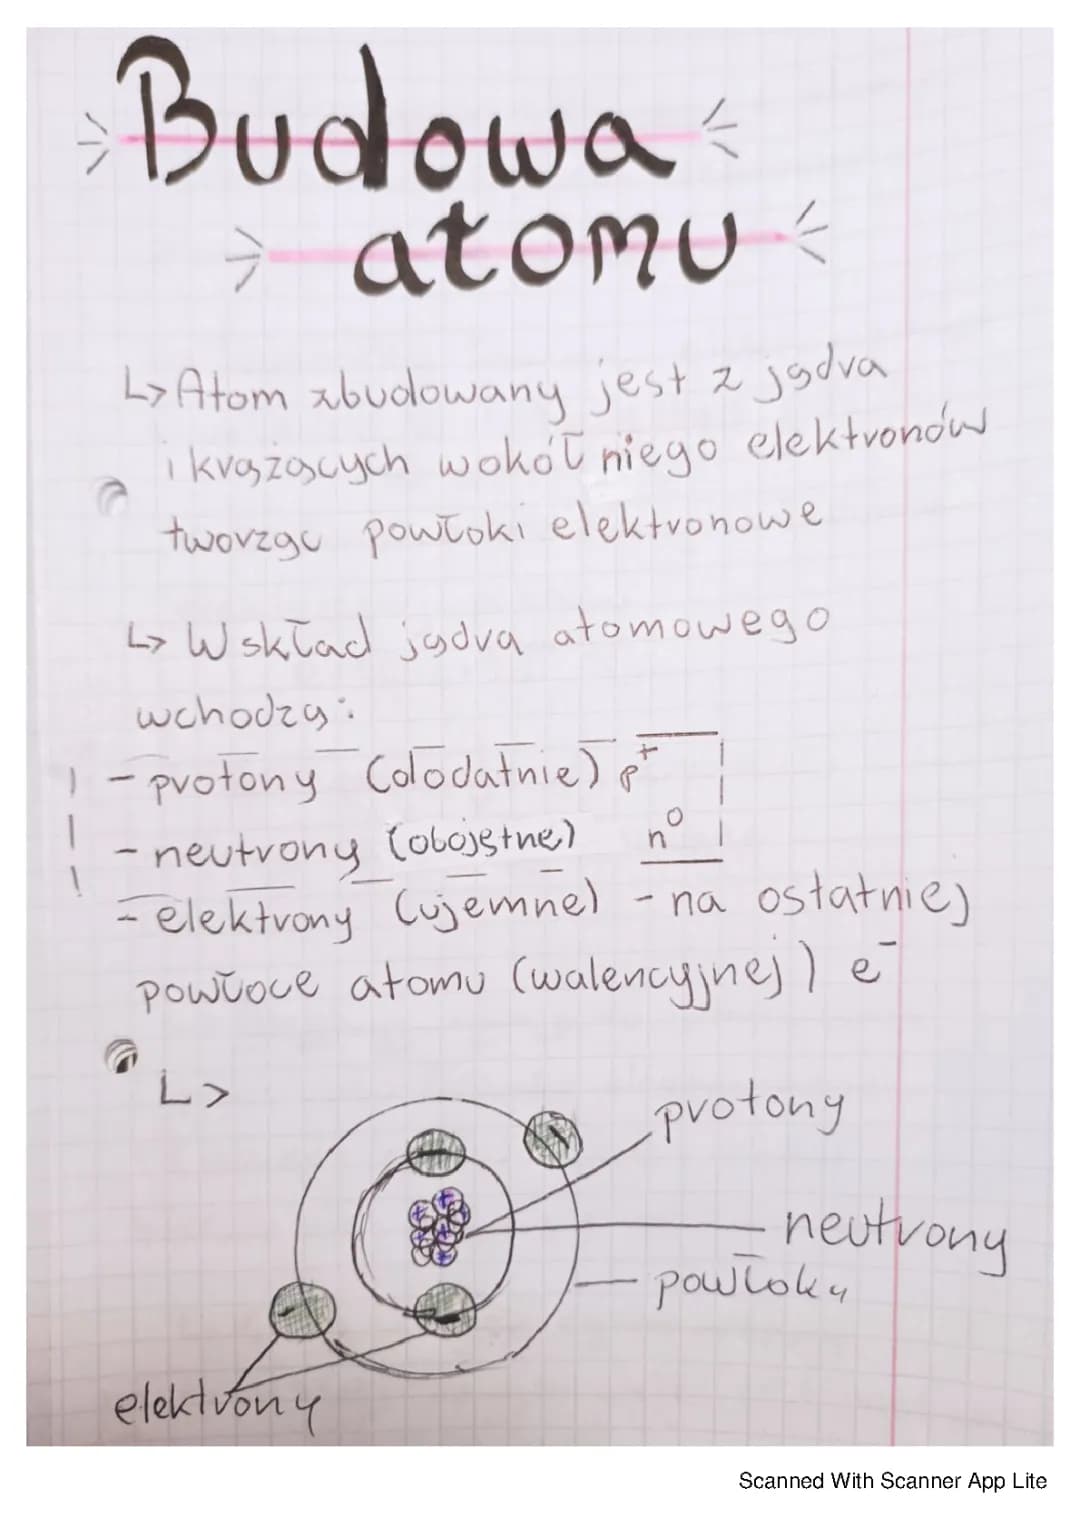 Budowa
atomu
↳ Atom zbudowany jest z jądra
i krążących wokół niego elektronów
tworząc powłoki elektronowe
↳ W skład jądra atomowego
wchodzą:
- protony (dodatnie) p⁺
- neutrony (obojętne) n⁰
- elektrony (ujemne) - na ostatniej
powłoce atomu (walencyjnej) e⁻
↳
protony
neutrony
powłoky
elektrony
Scanned With Scanner App Lite